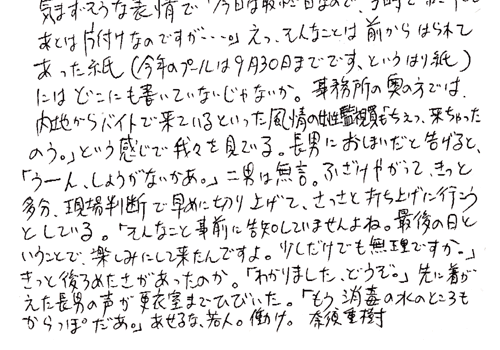 気まずそうな表情で「今日は最終日なので、3時で
あとは片付けなのですが・・・。」えっ、そんなことは前からはられて
あった紙(今年のプールは9月30日までです、というはり紙)
にはどこにも書いていないじゃないか。事務所の奥の方では、
内地からバイトで来ているといった風情の女性監視員も「ちぇっ、来ちゃった
のう。」という感じで我々を見てる。長男におしまいだと告げると、
「うーん、しょうがないかあ。」二男は無言。ふざけやがって、きっと
多分、現場判断で早めに切り上げて、さっさと打ち上げに行こう
としている。「そんなこと事前に告知していませんよね。最後の日と
いうことで、楽しみにして来たんですよ。少しだけでも無理ですか。」
きっと後ろめたさがあったのか。「わかりました、どうぞ。」先に着が
えた長男の声が更衣室までひびいた。「もう消毒の水のところも
からっぽだあ。」あせるな、若人。働け。 奈須重樹